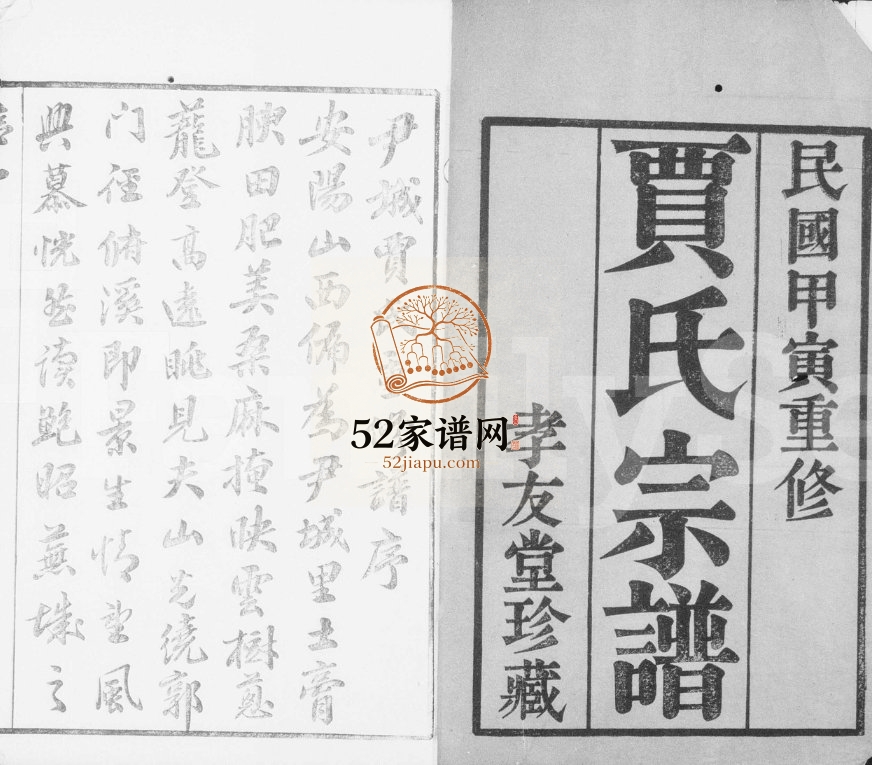 民國甲寅重修
賈氏宗譜
孝友堂珍藏
尹城賈氏譜序
安陽山西偏為尹城里土膏
腴田肥美桑麻掩映雲樹蔥
蘢登高遠眺見夫山光繞郭
门徑俯溪即景生情望風
興慕恍然讀鮑昭蕪城之
52家谱网
52jiapu.com